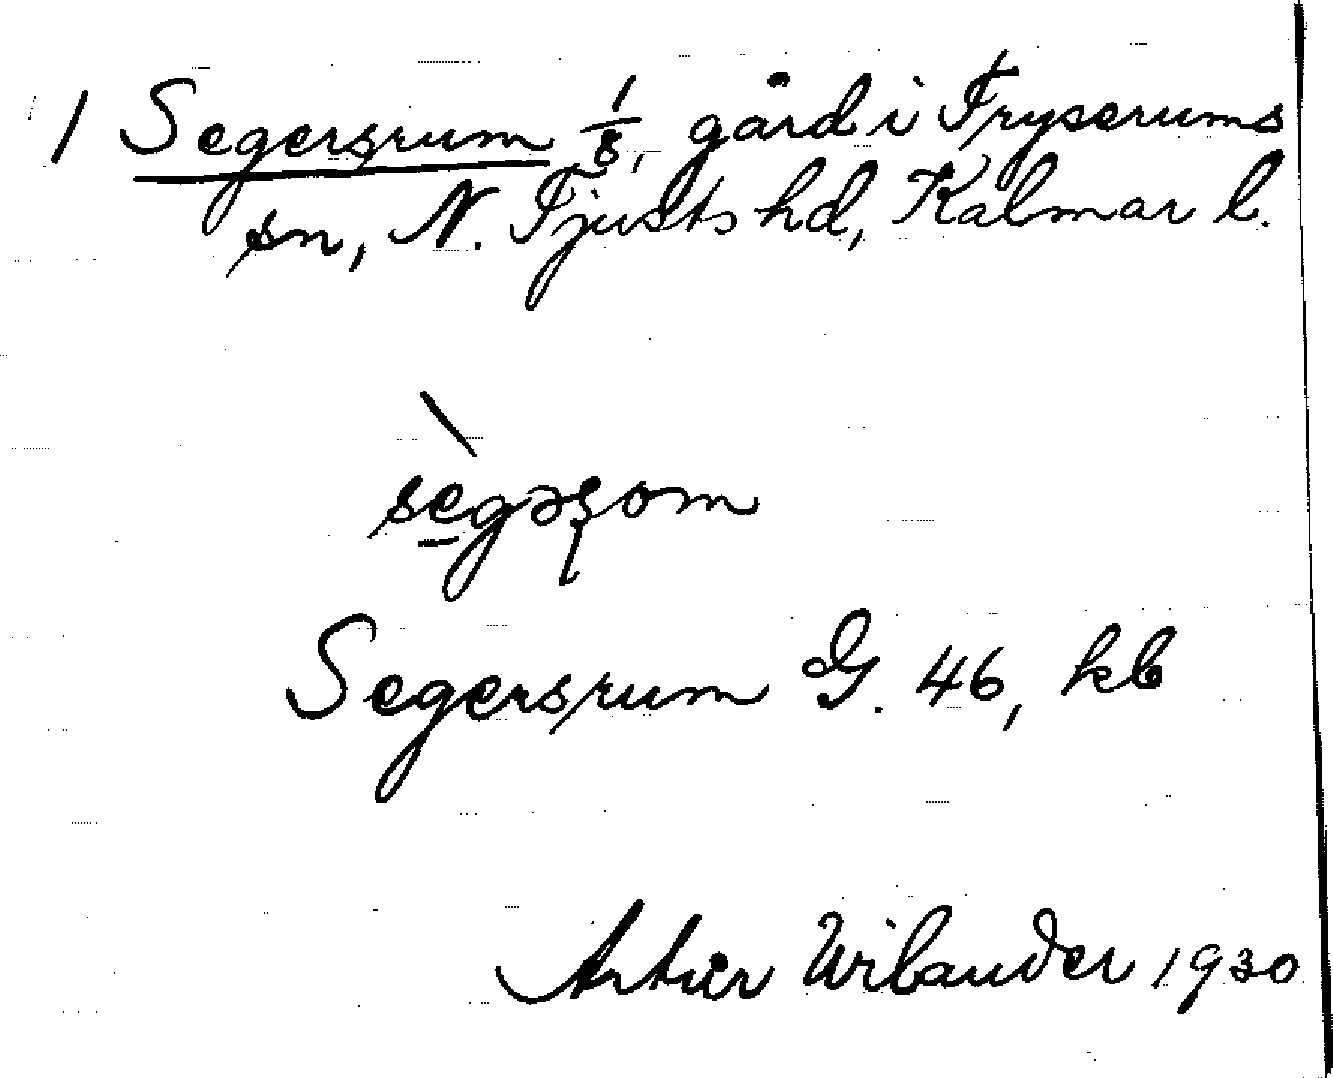 1 Segersrum 1/8, gård i Tryserums
sn, N. Tjusts hd, Kalmar l.
sègəʂom
Segersrum G. 46, kb
Artur Wilander 1930